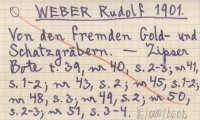 WEBER Rudolf 1901.
Von den fremden Gold- und
Schatzgräbern. — Zipser
Bote t. 39, nr 40, s. 2-3; nr 41,
s. 1-2; nr 43, s. 2; nr 45, s. 1-2;
nr 48, s. 3; nr 49, s. 2; nr 50,
s. 2-3; nr 51, s. 3-4.